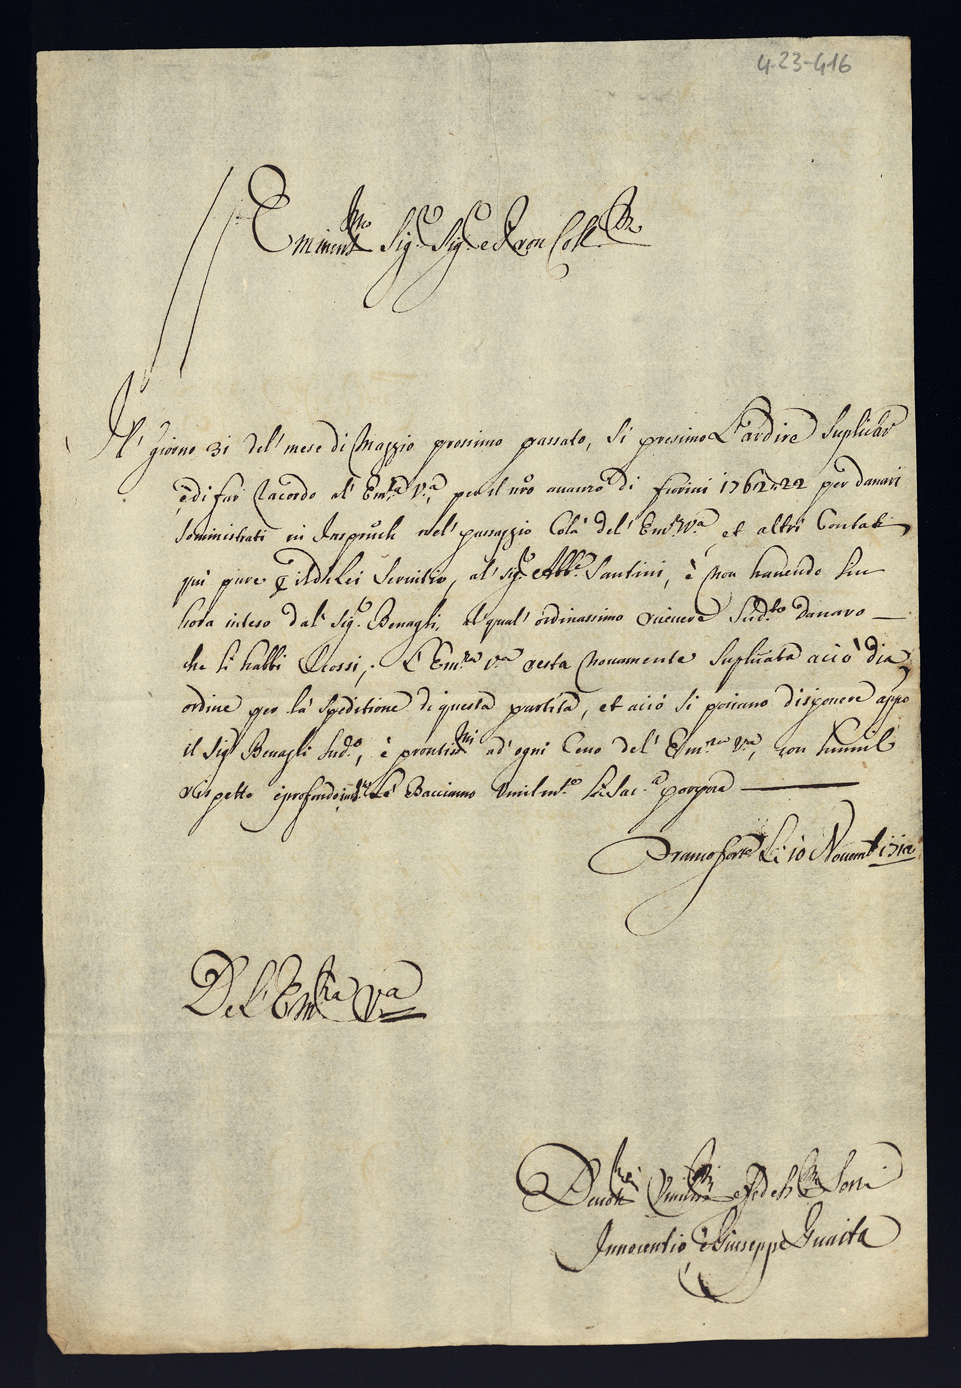 4-23-416
Eminent.mo Sig.re Sig.re e Pron Coll.mo
Il' Giorno 31 del' mese di Maggio prossimo passato, si presimo L'ardire Suplicar
è di far Racordo al' Em.za V.a, per il nro auanzo di fiorini 1762:22 per danari
Somministrati in Inspruch nel' passaggio Colà del' Em.za V.a et altri Contati
qui pure di Lei Seruitio, al' Sig.r Abb.e Santini, è Non hauendo sin
hora inteso dal' Sig.r Benagli, al qual' ordinassimo riceuere Sud.to danaro
che li habbi Rossi,. L'Em.za V.a resta Nouamente Suplicata acciò dia
ordine per la speditione di questa partita, et acciò si posiano disponere appo
il Sig.r Benagli Sud.o, è prontis.mi ad' ogni Ceno del' Em.za V.a, con humil
rispetto è profondo Le Bacciamo Vmilm.te La Sac.a porpora
Francoforte Li 10 Nouemb 1712
Del' Em.za V.a
Deuot.mi Vmiliss.mi e Fedeliss.mi Seru.i
Innocentio è Giuseppe Guaita